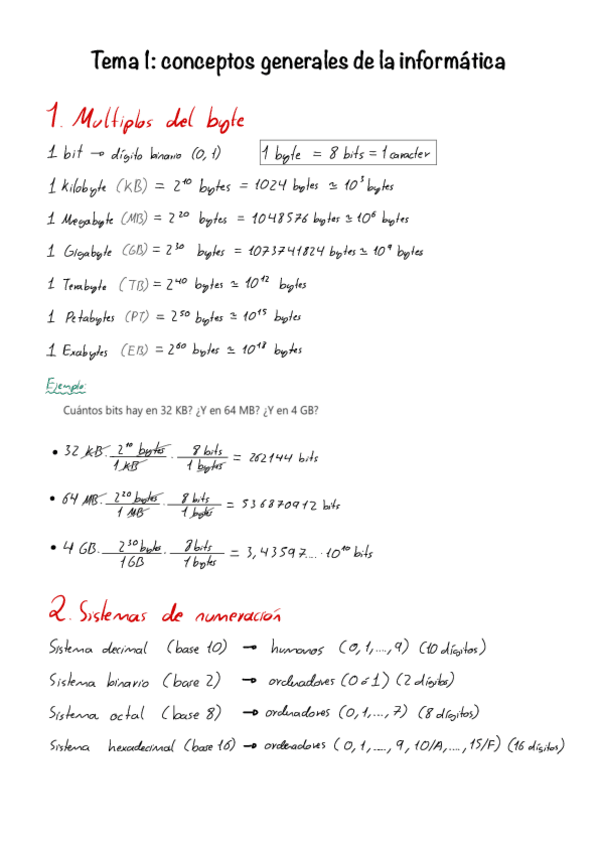 Tema 1: conceptos generales de la informática
1. Multiplos del byte
1 bit → dígito binario (0, 1) 1 byte = 8 bits = 1 caracter
1 Kilobyte (KB) = 2¹⁰ bytes = 1024 bytes ≃ 10³ bytes
1 Megabyte (MB) = 2²⁰ bytes = 1048576 bytes ≃ 10⁶ bytes
1 Gigabyte (GB) = 2³⁰ bytes = 1073741824 bytes ≃ 10⁹ bytes
1 Terabyte (TB) = 2⁴⁰ bytes ≃ 10¹² bytes
1 Petabytes (PT) = 2⁵⁰ bytes ≃ 10¹⁵ bytes
1 Exabytes (EB) = 2⁶⁰ bytes ≃ 10¹⁸ bytes
Ejemplo:
Cuántos bits hay en 32 KB? ¿Y en 64 MB? ¿Y en 4 GB?
• 32 KB · 2¹⁰ bytes / 1 KB · 8 bits / 1 bytes = 262144 bits
• 64 MB · 2²⁰ bytes / 1 MB · 8 bits / 1 bytes = 536870912 bits
• 4 GB · 2³⁰ bytes / 1 GB · 8 bits / 1 bytes = 3,43597... · 10¹⁰ bits
2. Sistemas de numeración
Sistema decimal (base 10) → humanos (0, 1, ..., 9) (10 dígitos)
Sistema binario (base 2) → ordenadores (0 ó 1) (2 dígitos)
Sistema octal (base 8) → ordenadores (0, 1, ..., 7) (8 dígitos)
Sistema hexadecimal (base 16) → ordenadores (0, 1, ...., 9, 10/A, ...., 15/F) (16 dígitos)